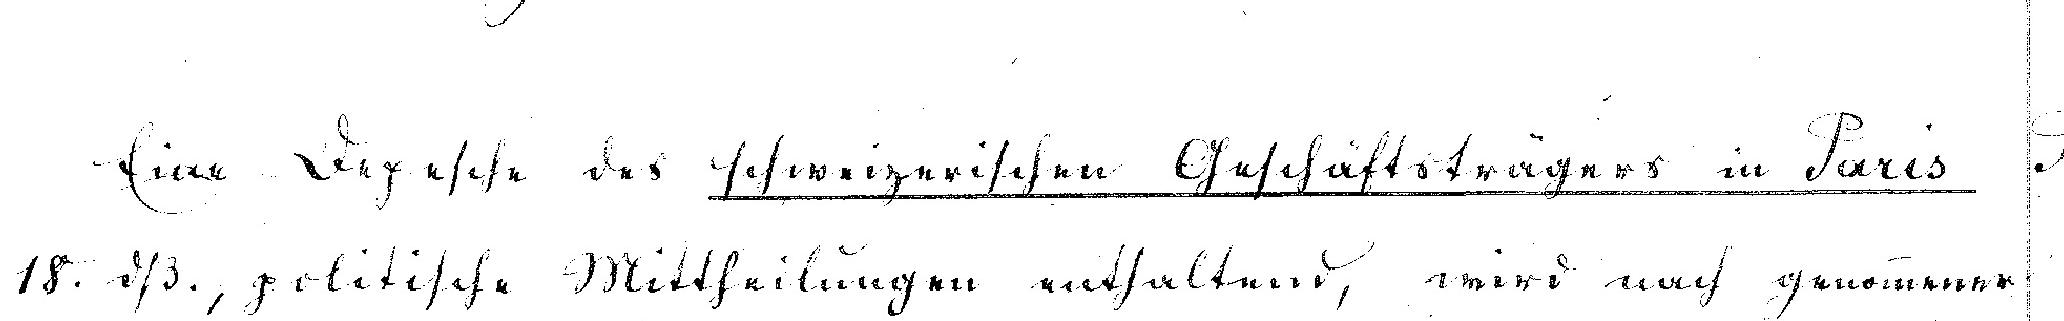 Eine Depesche des schweizerischen Geschäftsträgers in Paris
18. dß., politische Mittheilungen enthaltend, wird nach genom̄ener